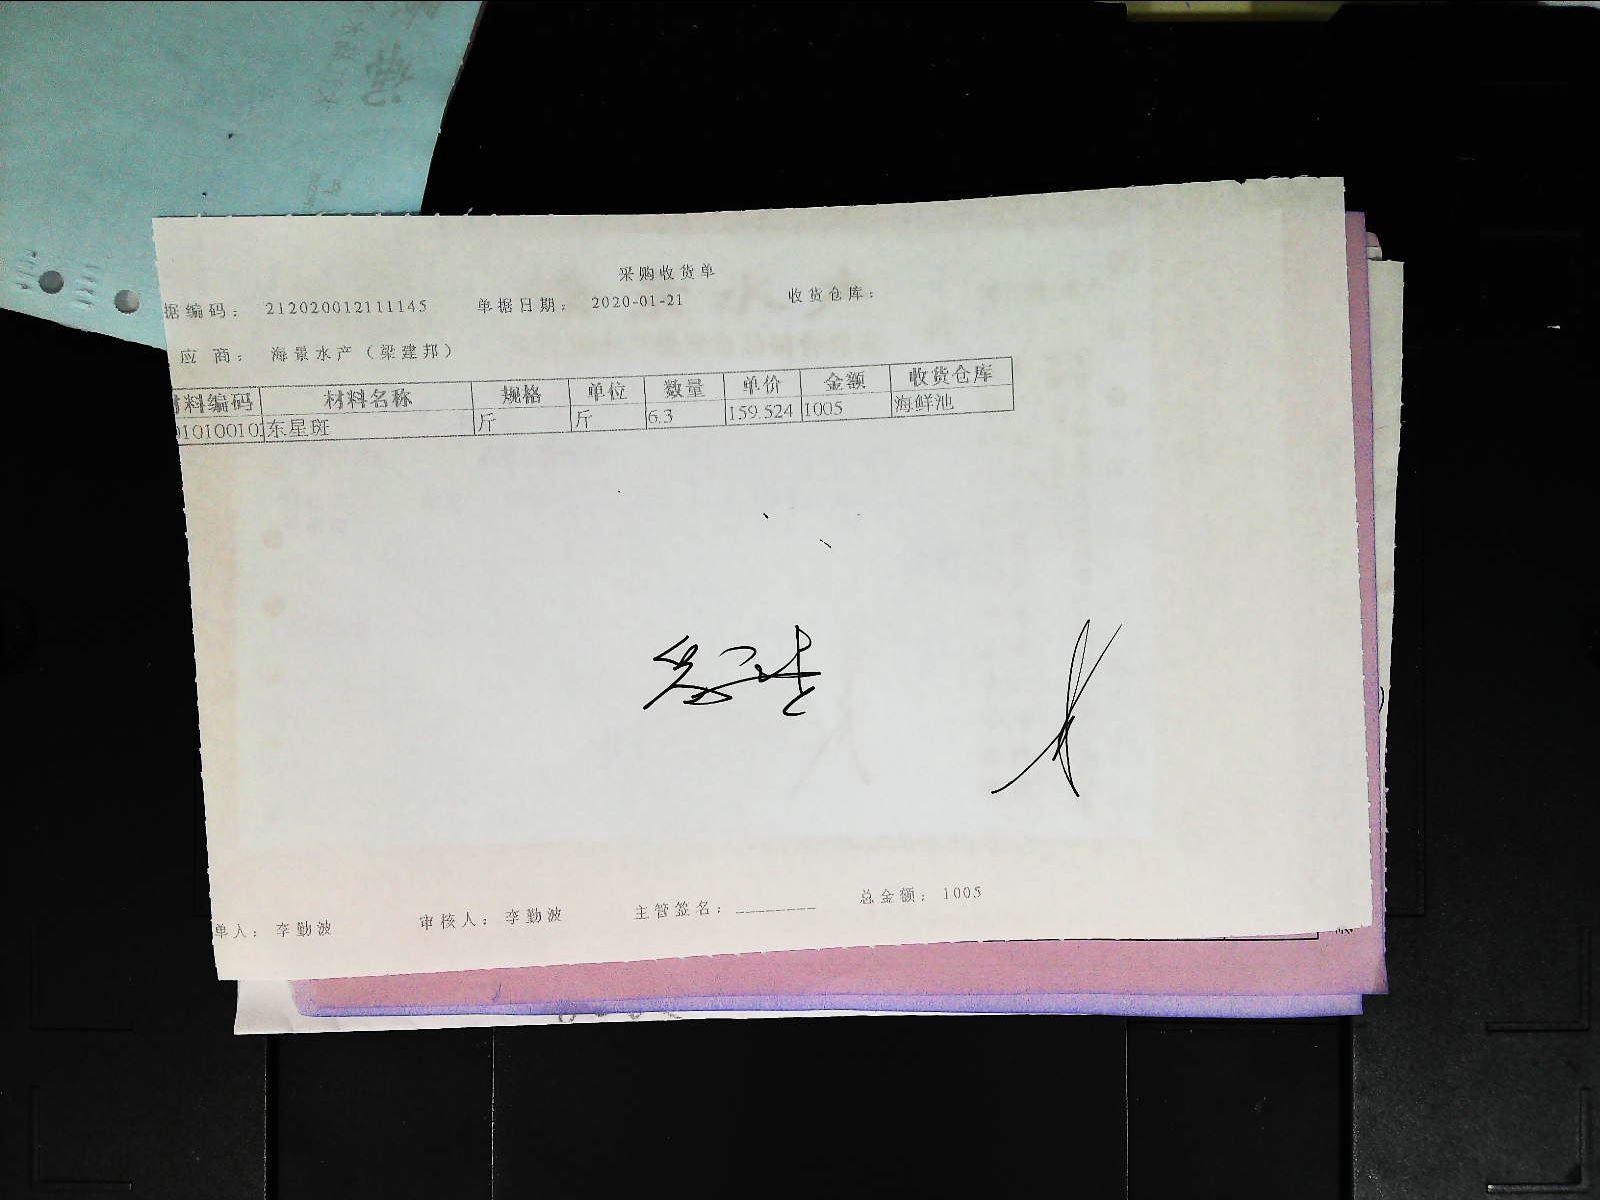 采购收货单
据编码： 212020012111145 单据日期： 2020-01-21 收货仓库：
应 商： 海景水产（梁建邦）
材料编码 材料名称 规格 单位 数量 单价 金额 收货仓库
01010010 东星斑 斤 斤 6.3 159.524 1005 海鲜池
单人： 李勤波 审核人： 李勤波 主管签名： ________ 总金额： 1005